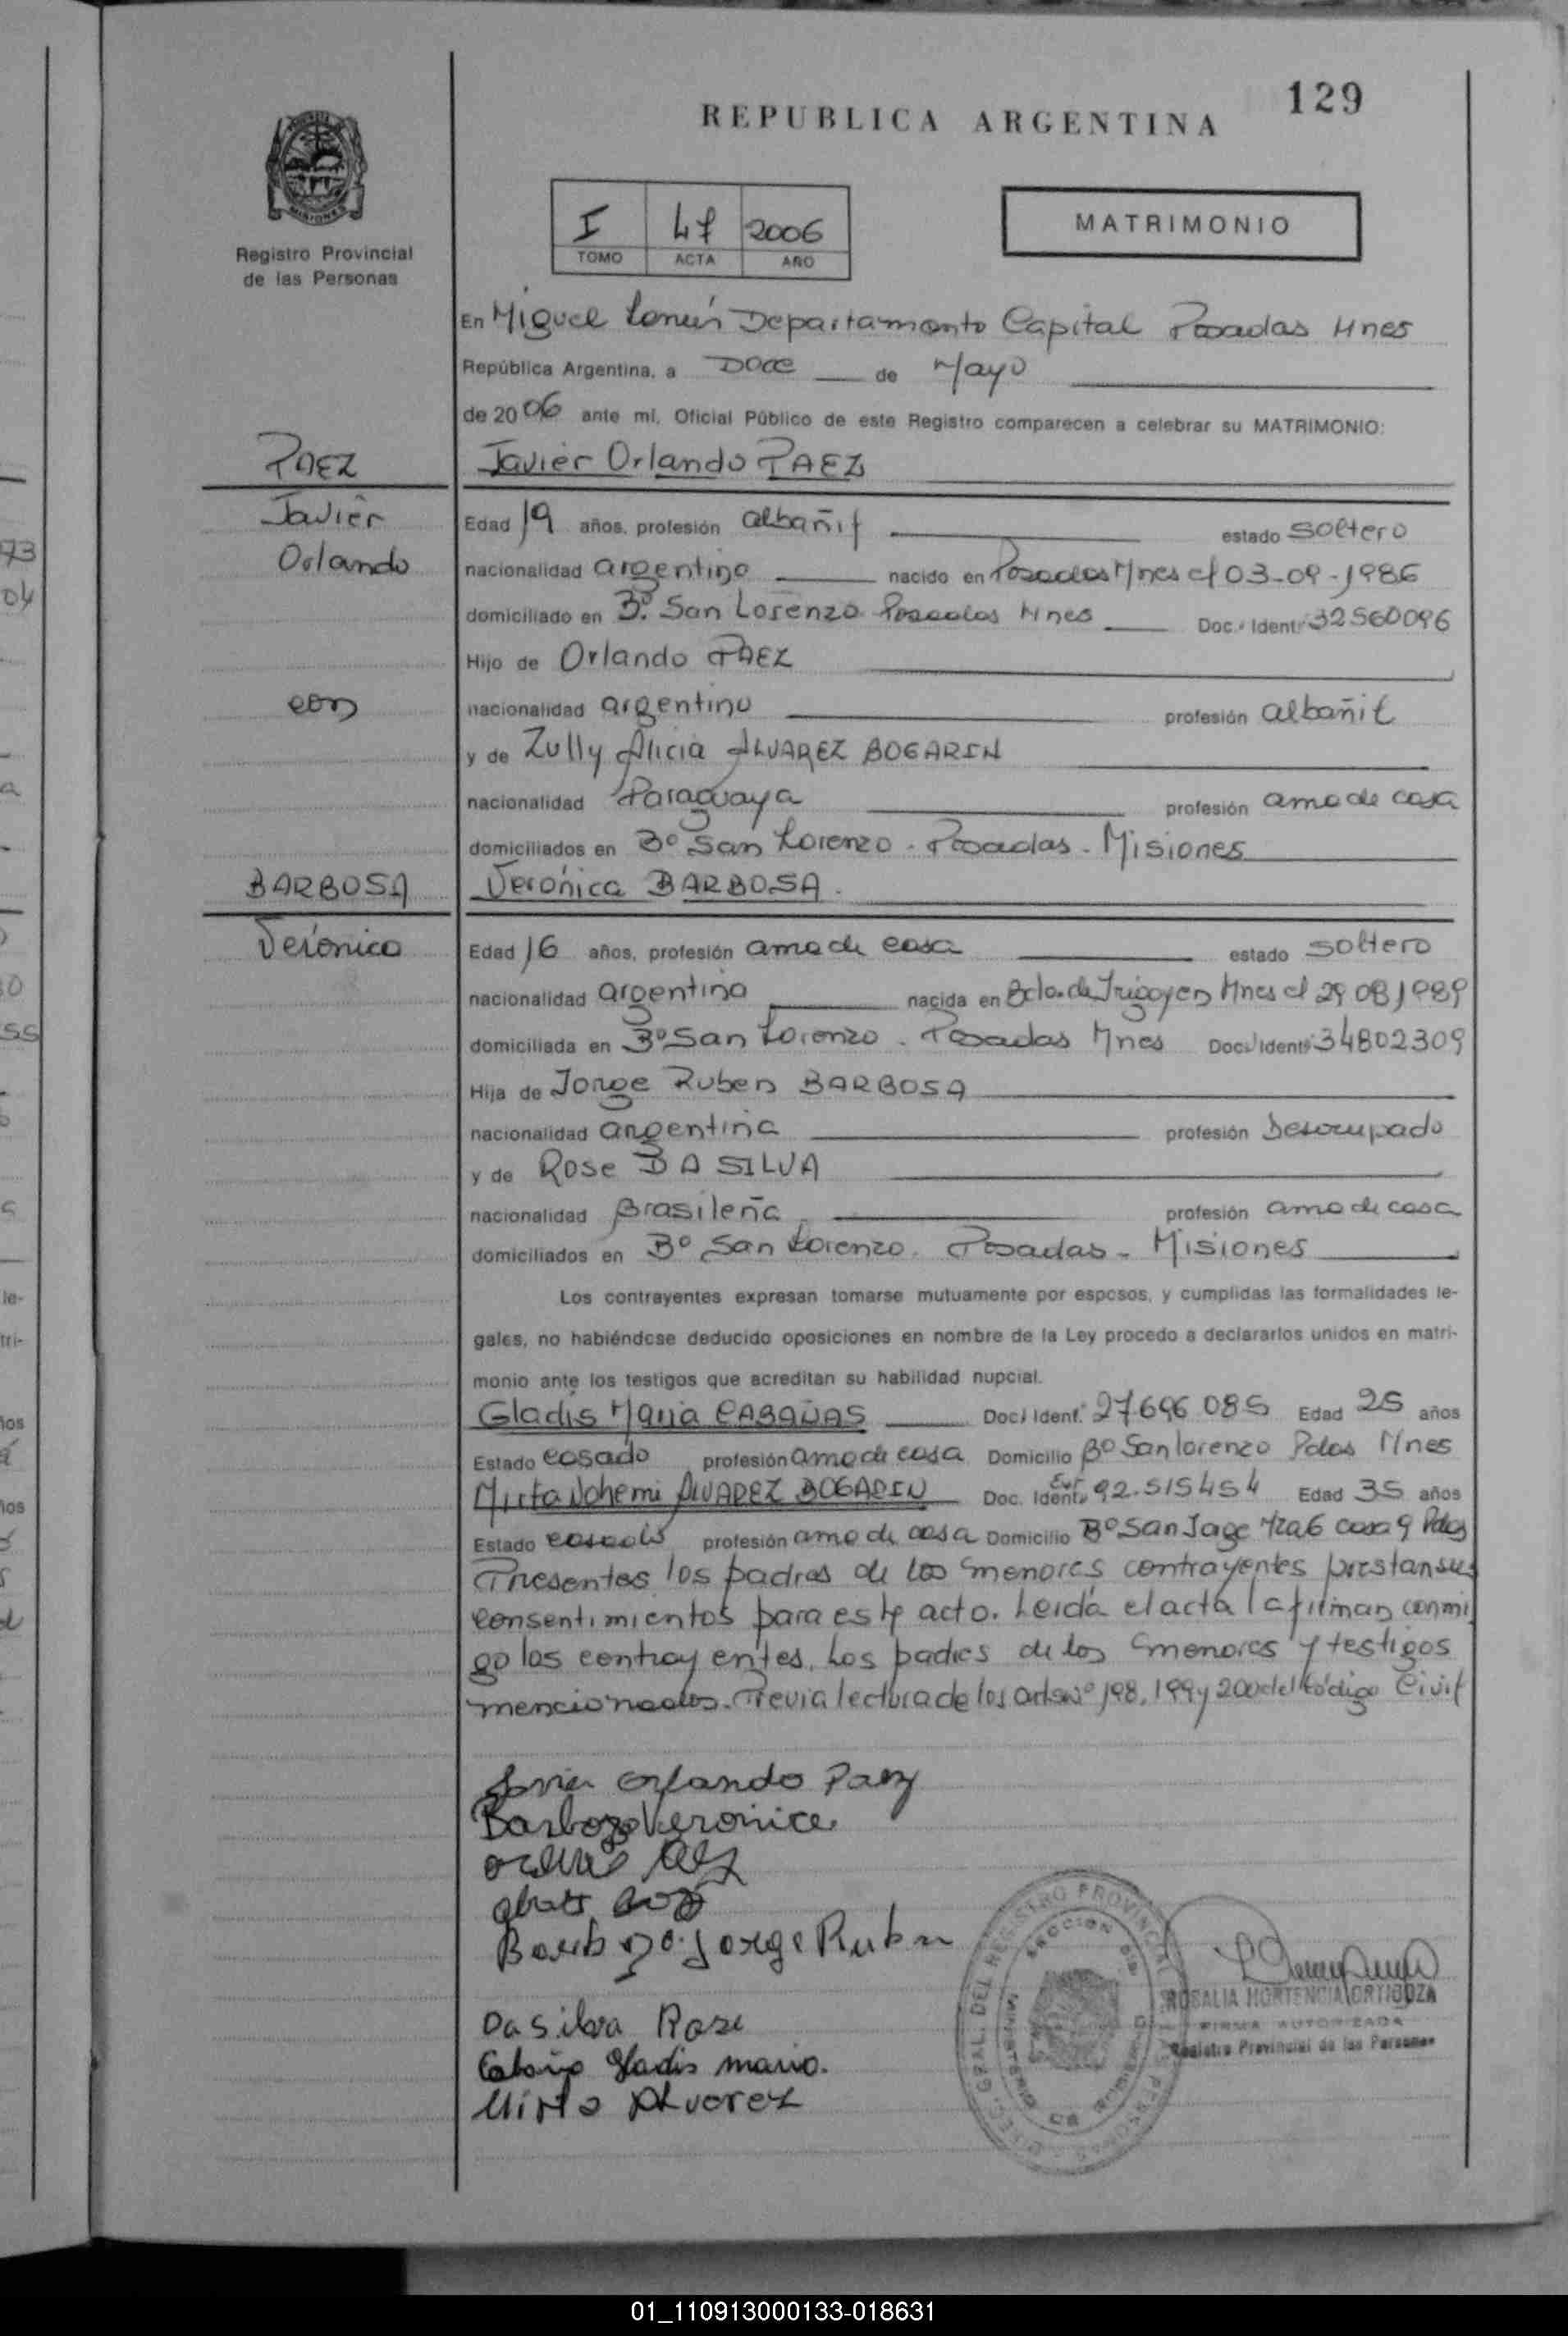 129
REPUBLICA ARGENTINA
I 47 2006
TOMO ACTA AÑO
MATRIMONIO
Registro Provincial
de las Personas
En Miguel Lanús Departamento Capital Posadas Mnes
República Argentina, a Doce de Mayo
de 2006 ante mí, Oficial Público de este Registro comparecen a celebrar su MATRIMONIO:
PAEZ
Javier Orlando PAEZ
Javier
Edad 19 años, profesión albañil estado soltero
Orlando
nacionalidad argentino nacido en Posadas Mnes el 03-09-1986
domiciliado en Bº San Lorenzo Posadas Mnes Doc. Ident. 32560096
Hijo de Orlando PAEZ
con
nacionalidad argentino profesión albañil
y de Zully Alicia ALVAREZ BOGARIN
nacionalidad Paraguaya profesión ama de casa
domiciliados en Bº San Lorenzo - Posadas - Misiones
BARBOSA
Verónica BARBOSA.
Verónica
Edad 16 años, profesión ama de casa estado soltero
nacionalidad argentina nacida en Bdo. de Irigoyen Mnes el 29 08 1989
domiciliada en Bº San Lorenzo - Posadas Mnes Doc. Ident. 34802309
Hija de Jorge Ruben BARBOSA
nacionalidad argentina profesión Desocupado
y de Rose DA SILVA
nacionalidad Brasileña profesión ama de casa
domiciliados en Bº San Lorenzo. Posadas - Misiones
Los contrayentes expresan tomarse mutuamente por esposos, y cumplidas las formalidades le-
gales, no habiéndose deducido oposiciones en nombre de la Ley procedo a declararlos unidos en matri-
monio ante los testigos que acreditan su habilidad nupcial.
Gladis Maria CABAÑAS Doc. Ident. 27696 085 Edad 25 años
Estado casado profesión ama de casa Domicilio Bº San lorenzo Pdas Mnes
Mirta Nohemi ALVAREZ BOGARIN Doc. Ident. Ext. 92.515454 Edad 35 años
Estado casado profesión ama de casa Domicilio Bº San Jorge Mza 6 casa 9 Pdas
Presentes los padres de los menores contrayentes prestan sus
consentimientos para este acto. Leida el acta la firman conmi
go los contrayentes, Los padres de los menores y testigos
mencionados. Previa lectura de los arts. nº 198, 199 y 200 del Código Civil
Javier Orlando Paez
Barboza Veronica
Barboza Jorge Ruben
Da Silva Rose
Cabaña Gladis maria.
Mirta Alvarez
ROSALIA HORTENCIA ORTIGOZA
FIRMA AUTORIZADA
Registro Provincial de las Personas
01_110913000133-018631